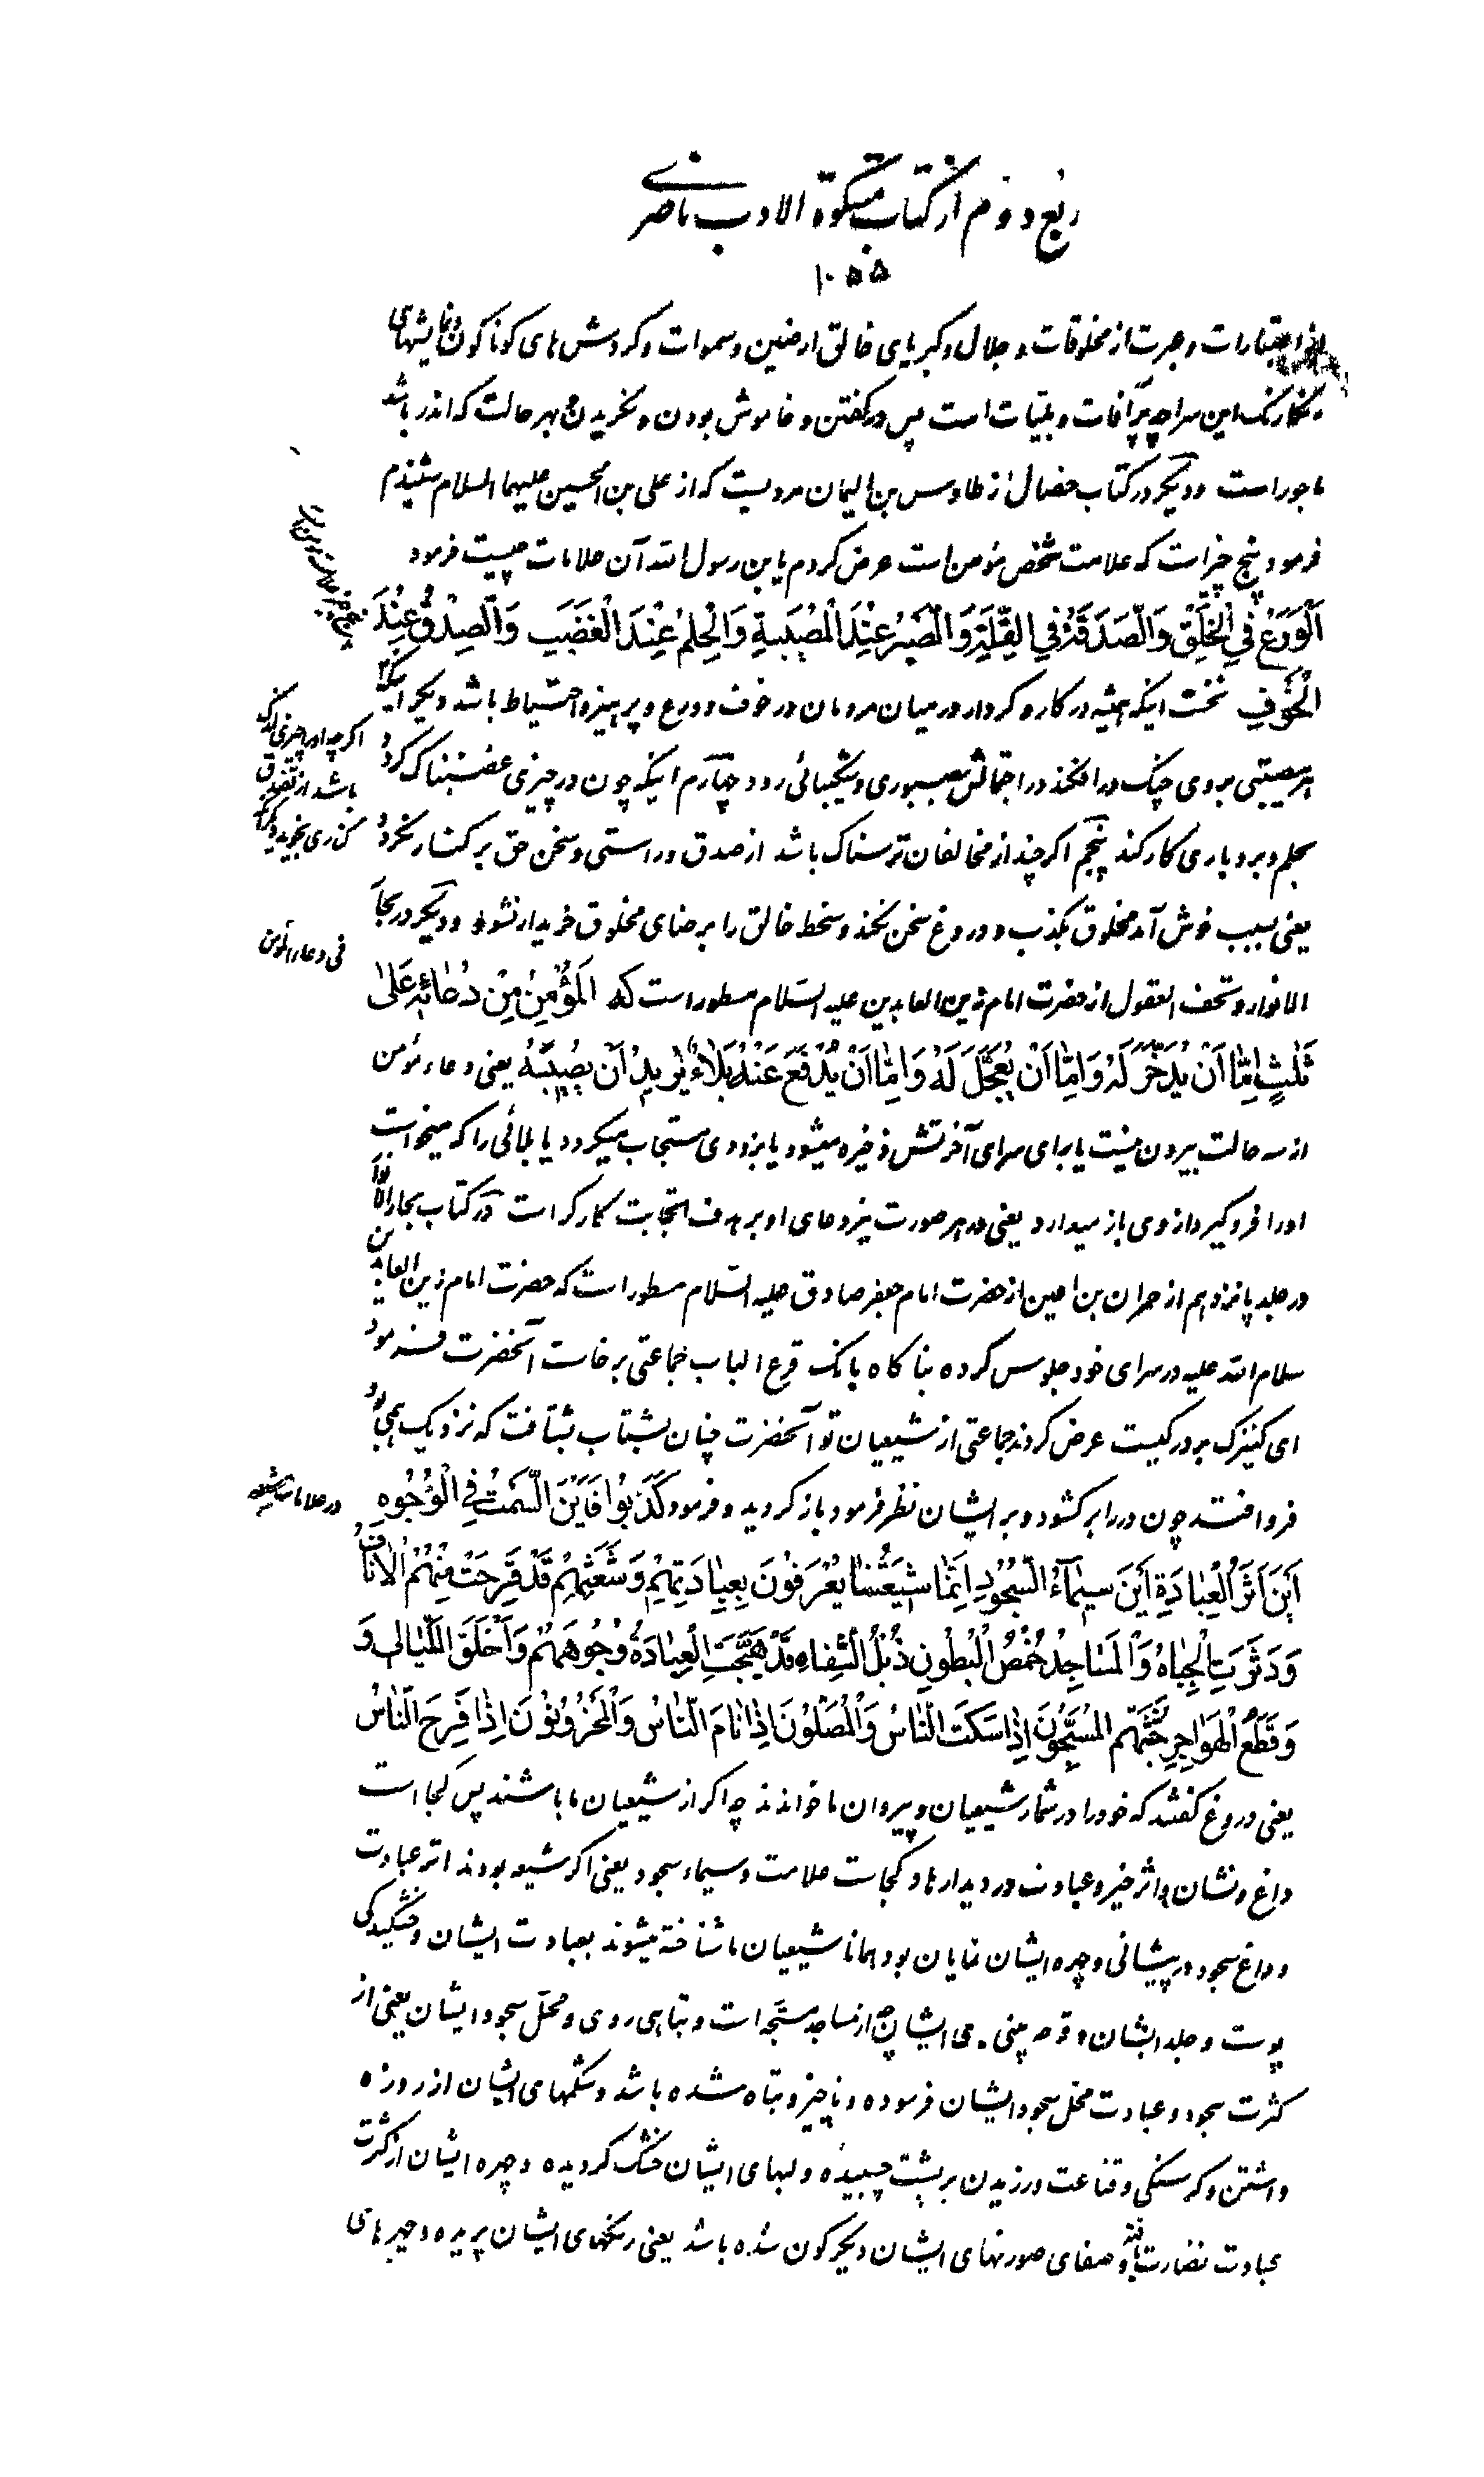 ربع دوم از کتاب مشکوة الادب ناصری
۱۰۵۵
اعتبارات و عبرت از مخلوقات و جلال و کبریای خالق ارضین و سموات و کردش های کوناکون و نمایشهای
رنکارنک این سراچه پرآفات و بلیّات است پس در کفتن و خاموش بودن و نکریدن و بهر حالت که اندر باشد
ماجور است و دیکر در کتاب خصال از طاوس بن الیمان مرویست که از علی بن الحسین علیهما السلام شنیدم
فرمود پنج چیز است که علامت شخص مؤمن است عرض کردم یابن رسول الله آن علامات چیست فرمود
اَلْوَرَعُ فِی الْخَلْوَةِ وَالصَّدَقَةُ فِی الْقِلَّةِ وَالصَّبْرُ عِنْدَ الْمُصیبَةِ وَالْحِلْمُ عِنْدَ الْغَضَبِ وَالصِّدْقُ عِنْدَ
الْخَوْفِ نخست اینکه همیشه در کار و کردار در میان مردمان در خوف و ورع و پرهیز و احتیاط باشد دیکر اینکه
اکرچه او را چیزی اندک
باشد از تصدق
هر مصیبتی بروی چنک درافکند در اجتماعش بصبوری و شکیبائی رود چهارم اینکه چون در چیزی غضبناک کردد
بحلم و بردباری کار کند پنجم اکر چند از مخالفان ترسناک باشد از صدق و راستی و سخن حق بر کنار نکردد
یعنی بسبب خوش آمد مخلوق بکذب و دروغ سخن نکند و سخط خالق را برضای مخلوق خریدار نشود و دیکر در بحار
فی دعاء المؤمن
الانوار و تحف العقول از حضرت امام زین العابدین علیه السّلام مسطور است که اَلْمُؤْمِنُ مِنْ دُعائِهِ عَلیٰ
ثَلٰثٍ اِمّا اَنْ یُدَّخَرَ لَهُ وَاِمّا اَنْ یُعَجَّلَ لَهُ وَاِمّا اَنْ یُدْفَعَ عَنْهُ بَلاءٌ یُریدُ اَنْ یُصیبَهُ یعنی دعاء مؤمن
از سه حالت بیرون نیست یا برای سرای آخرتش ذخیره میشود یا بزودی مستجاب میکردد یا بلائی را که میخواست
او را فرو کیرد از وی باز میدارد یعنی در هر صورت تیر دعای او بر هدف استجابت کارکر است در کتاب بحار الانوار
در جلد پانزدهم از حمران بن اعین از حضرت امام جعفر صادق علیه السّلام مسطور است که حضرت امام زین العابدین
سلام الله علیه در سرای خود جلوس کرده بناکاه بانک قرع الباب جماعتی برخاست آنحضرت فرمود
ای کنیزک بر در کیست عرض کردند جماعتی از شیعیان تو آنحضرت چنان بشتاب بشتافت که نزدیک همی بود
در علامات شیعه
فرو افتد چون در را بر کشود و بر ایشان نظر فرمود باز کردید و فرمود کَذَبُوا فَاَیْنَ السَّمْتُ فِی الْوُجُوهِ
اَیْنَ اَثَرُ الْعِبادَةِ اَیْنَ سیماءُ السُّجُودِ اِنَّما شیعَتُنا یُعْرَفُونَ بِعِبادَتِهِمْ وَشَعَثِهِمْ قَدْ قَرِحَتْ مِنْهُمُ الْاٰنافُ
وَدَثَرَتِ الْجِباهُ وَالْمَساجِدُ خُمْصُ الْبُطُونِ ذُبُلُ الشِّفاهِ قَدْ هَیَّجَتِ الْعِبادَةُ وُجُوهَهُمْ وَاَخْلَقَ اللَّیالی وَ
وَقَطْعُ الْهَواجِرِ جُثَّتَهُم الْمُسَبِّحُونَ اِذا سَکَتَ النّاسُ وَالْمُصَلُّونَ اِذا نامَ النّاسُ وَالْمَحْزُونُونَ اِذا فَرِحَ النّاسُ
یعنی دروغ کفتند که خود را در شمار شیعیان و پیروان ما خواندند چه اکر از شیعیان ما باشند پس کجا است
داغ و نشان و اثر خیر و عبادت در دیدارها و کجاست علامت و سیماء سجود یعنی اکر شیعه بودند اثر عبادت
و داغ سجود در پیشانی و چهره ایشان نمایان بود همانا شیعیان ما شناخته میشوند بعبادت ایشان و خشکیدکی
پوست و جلد ایشان و قرحه بینی های ایشان از مساجد و تباهی روی و محلّ سجود ایشان یعنی از
کثرت سجود و عبادت محل سجود ایشان فرسوده و ناچیز و تباه شده باشد و شکمهای ایشان از روزه
داشتن و کرسنکی و قناعت ورزیدن بر پشت چسبیده و لبهای ایشان خشک کردیده و چهره ایشان از کثرت
عبادت نضارت یافته و صفای صورتهای ایشان دیکرکون شده باشد یعنی رنکهای ایشان پریده و چهرهای